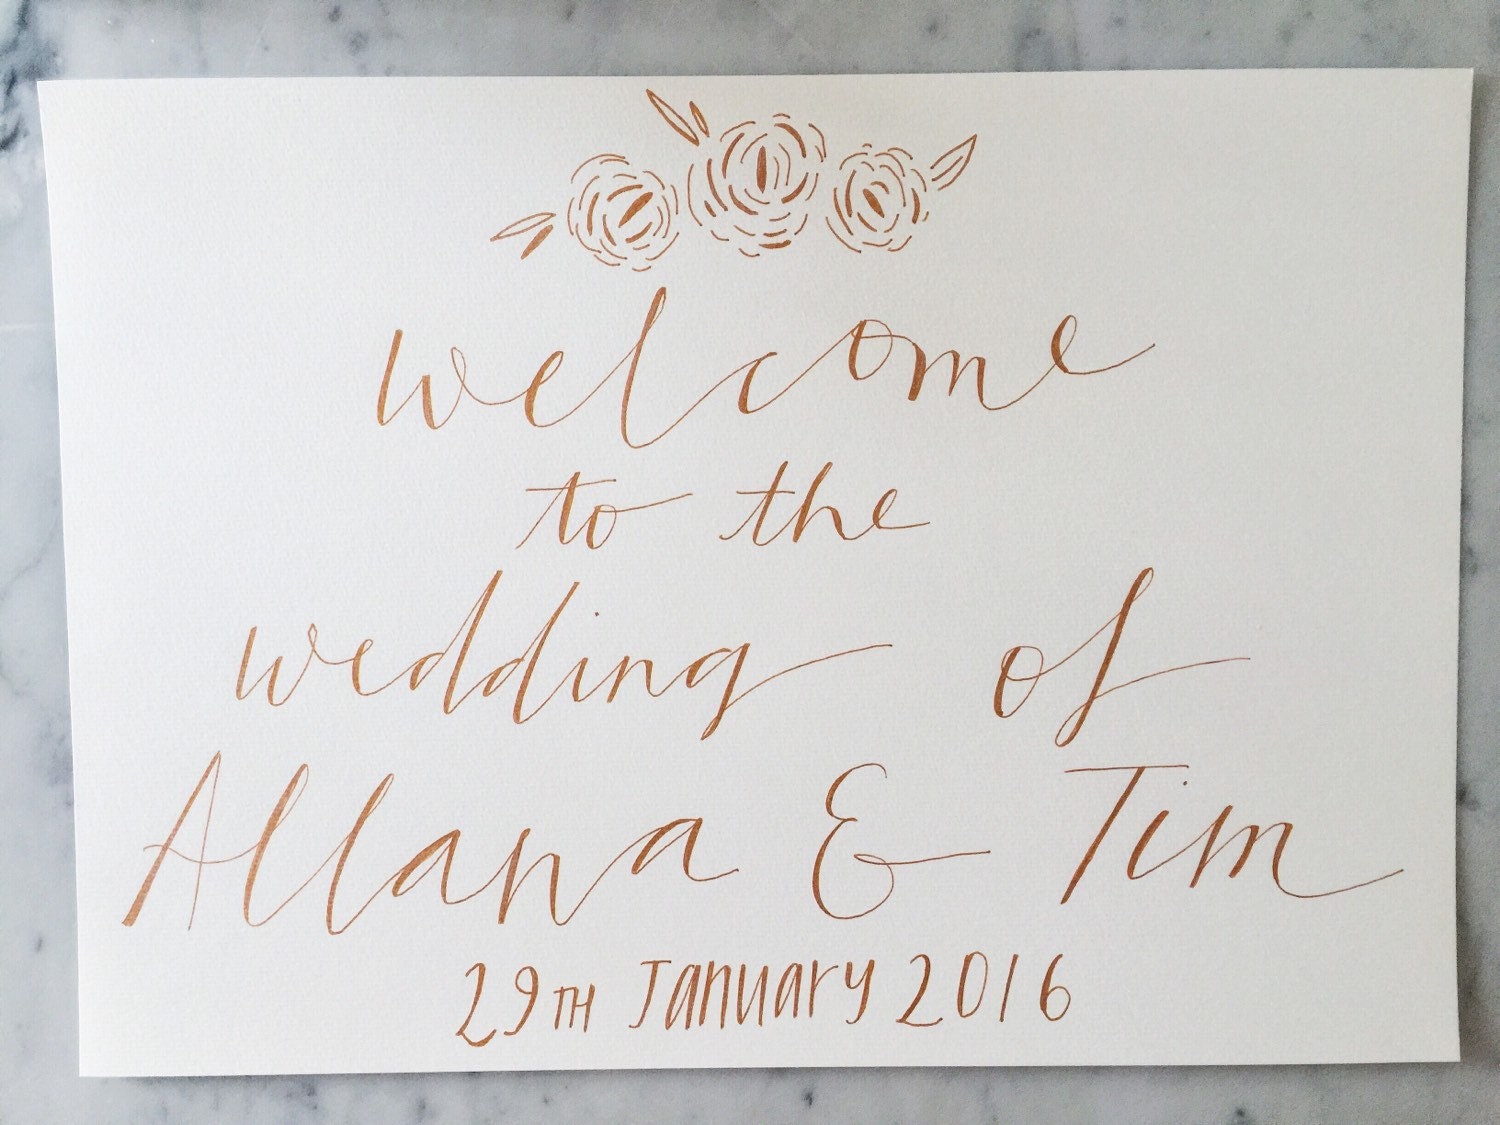 welcome
to the
wedding of
Allana & Tim
29TH January 2016